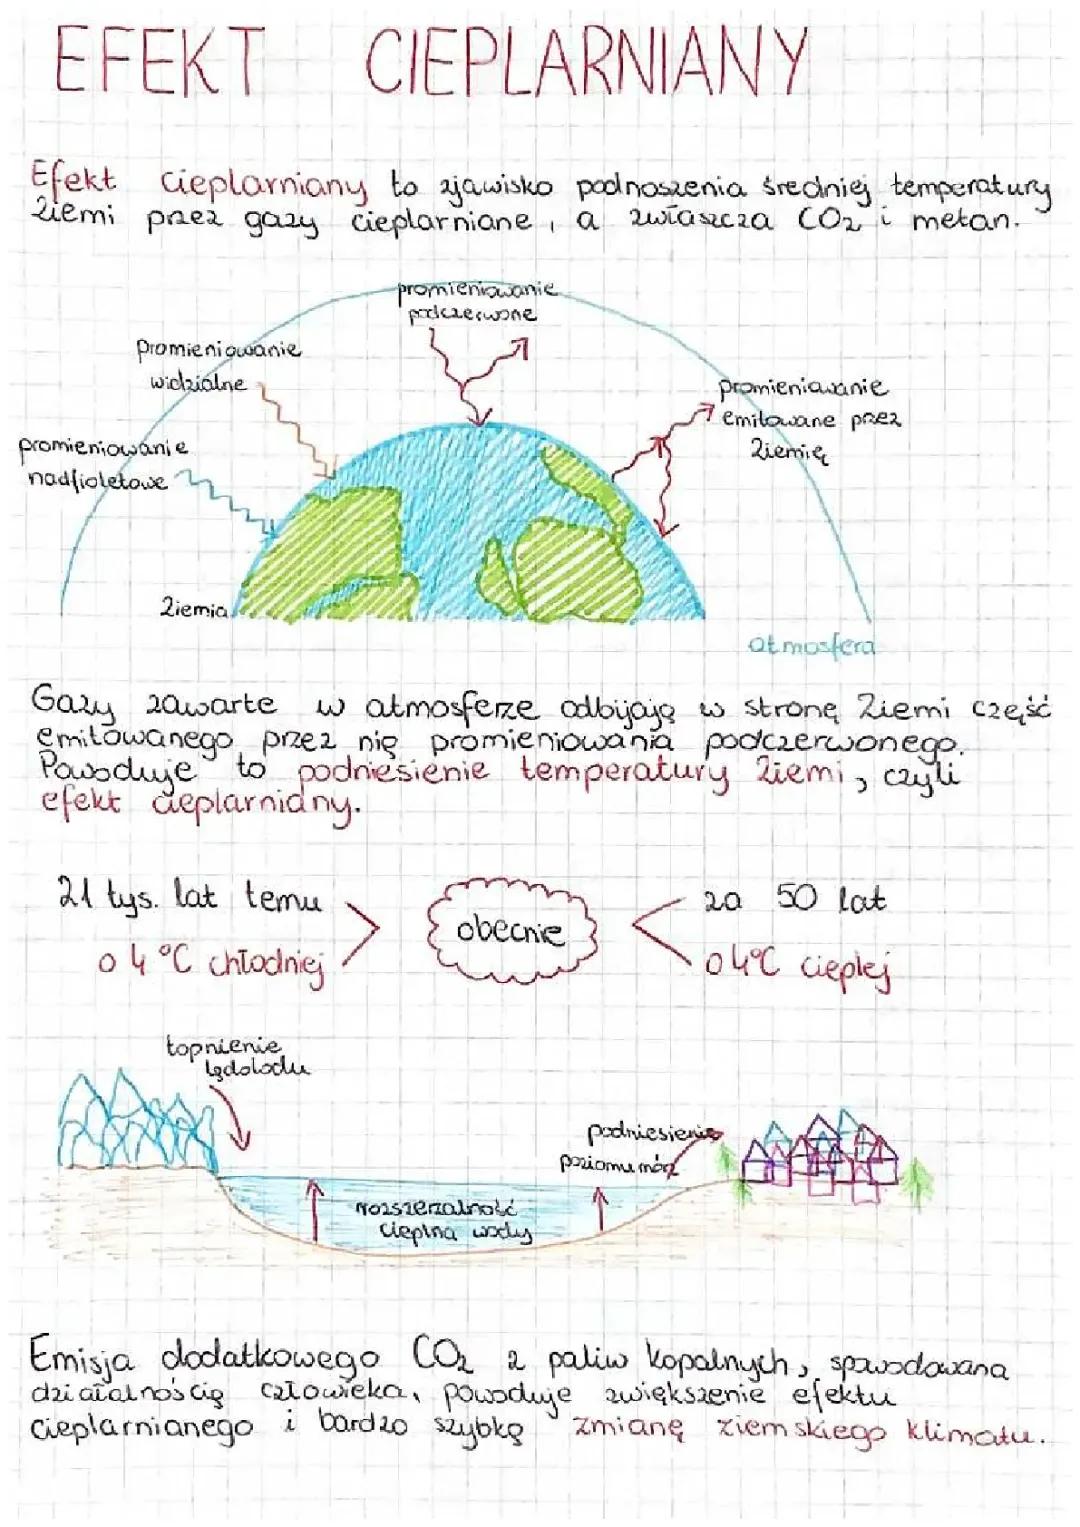 EFEKT CIEPLARNIANY
Efekt cieplarniany to zjawisko podnoszenia średniej temperatury
Ziemi przez gazy cieplarniane, a zwłaszcza CO₂ i metan.
promieniowanie
podczerwone
promieniowanie
widzialne
promieniowanie
emitowane przez
Ziemię
promieniowanie
nadfioletowe
Ziemia
atmosfera
Gazy zawarte w atmosferze odbijają w stronę Ziemi część
emitowanego przez nią promieniowania podczerwonego.
Powoduje to podniesienie temperatury Ziemi, czyli
efekt cieplarniany.
21 tys. lat temu
o 4 °C chłodniej
obecnie
za 50 lat
o 4°C cieplej
topnienie
lądolodu
podniesienie
poziomu mórz
rozszerzalność
cieplna wody
Emisja dodatkowego CO₂ z paliw kopalnych, spowodowana
działalnością człowieka, powoduje zwiększenie efektu
cieplarnianego i bardzo szybką zmianę ziemskiego klimatu.